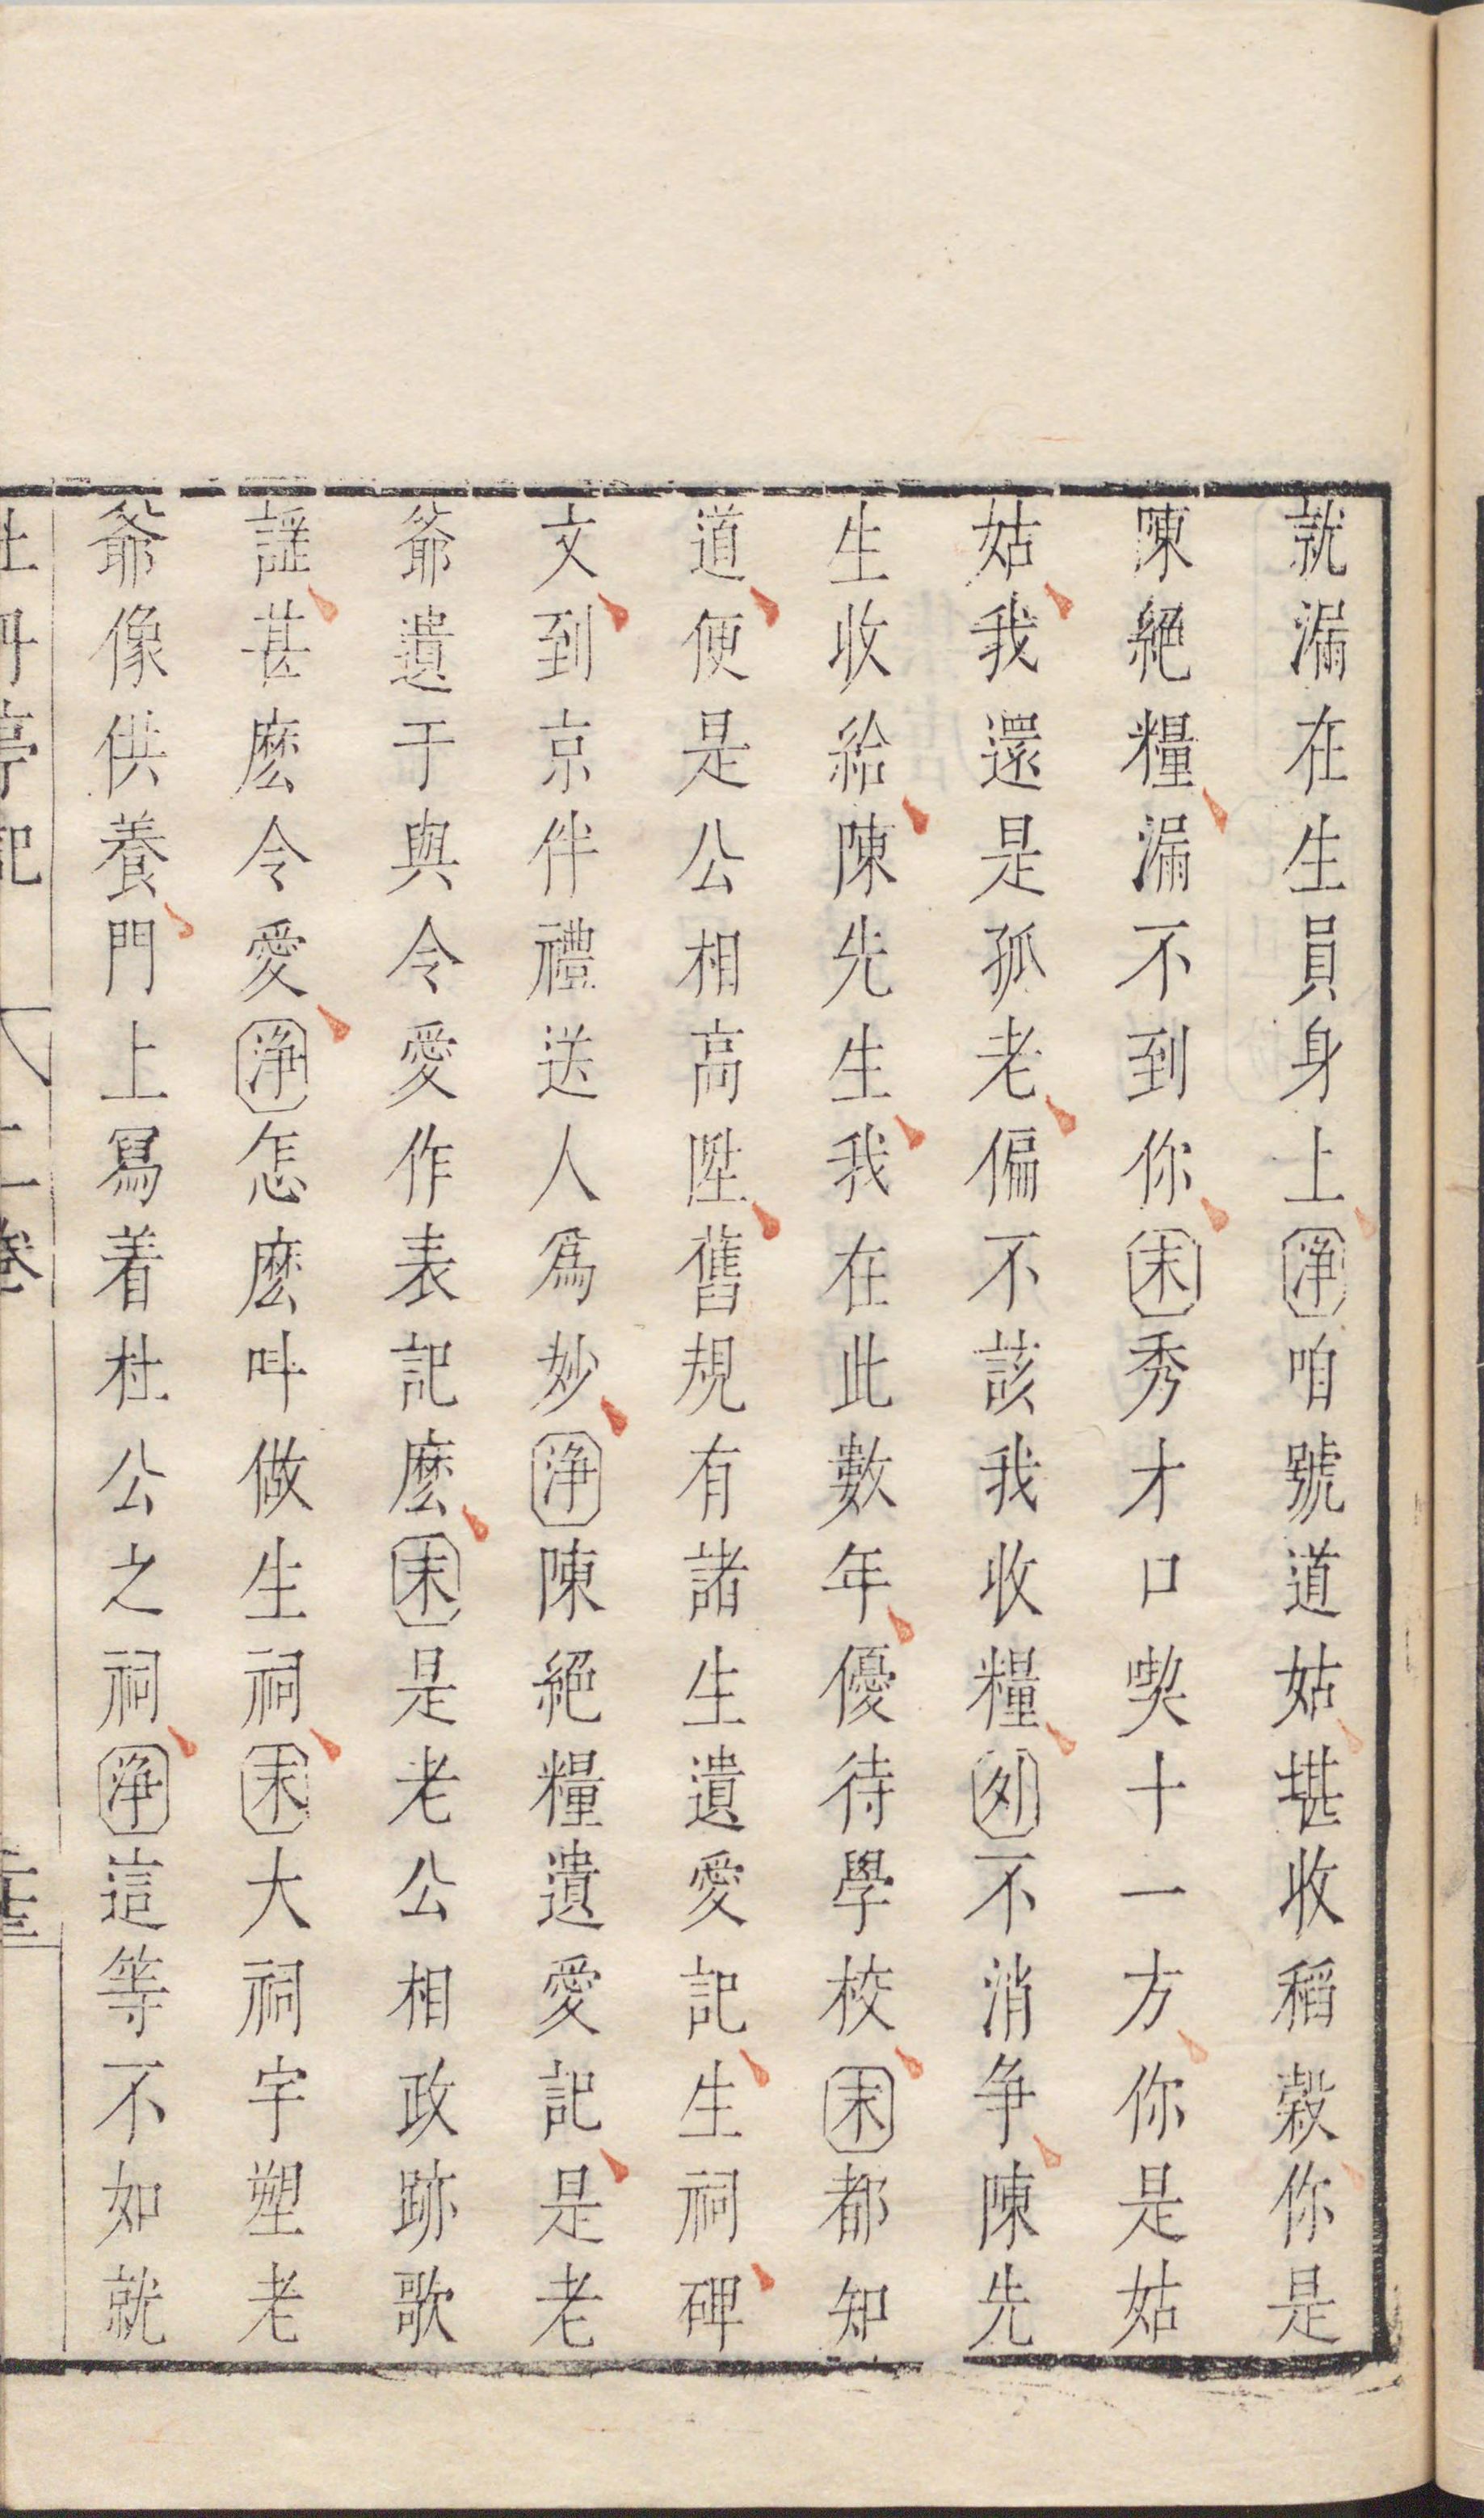 就漏在生員身上淨咱號道姑堪收稻穀你是
陳絕糧漏不到你末秀才口喫十一方你是姑
姑我還是孤老偏不該我收糧外不消爭陳先
生收給陳先生我在此數年優待學校末都知
道便是公相高陞舊規有諸生遺愛記生祠碑
文到京伴禮送人爲妙淨陳絕糧遺愛記是老
爺遺于與令愛作表記麽末是老公相政跡歌
謡甚麽令愛淨怎麽呌做生祠末大祠宇塑老
爺像供養門上冩着杜公之祠淨這等不如就
牡丹亭記 上卷